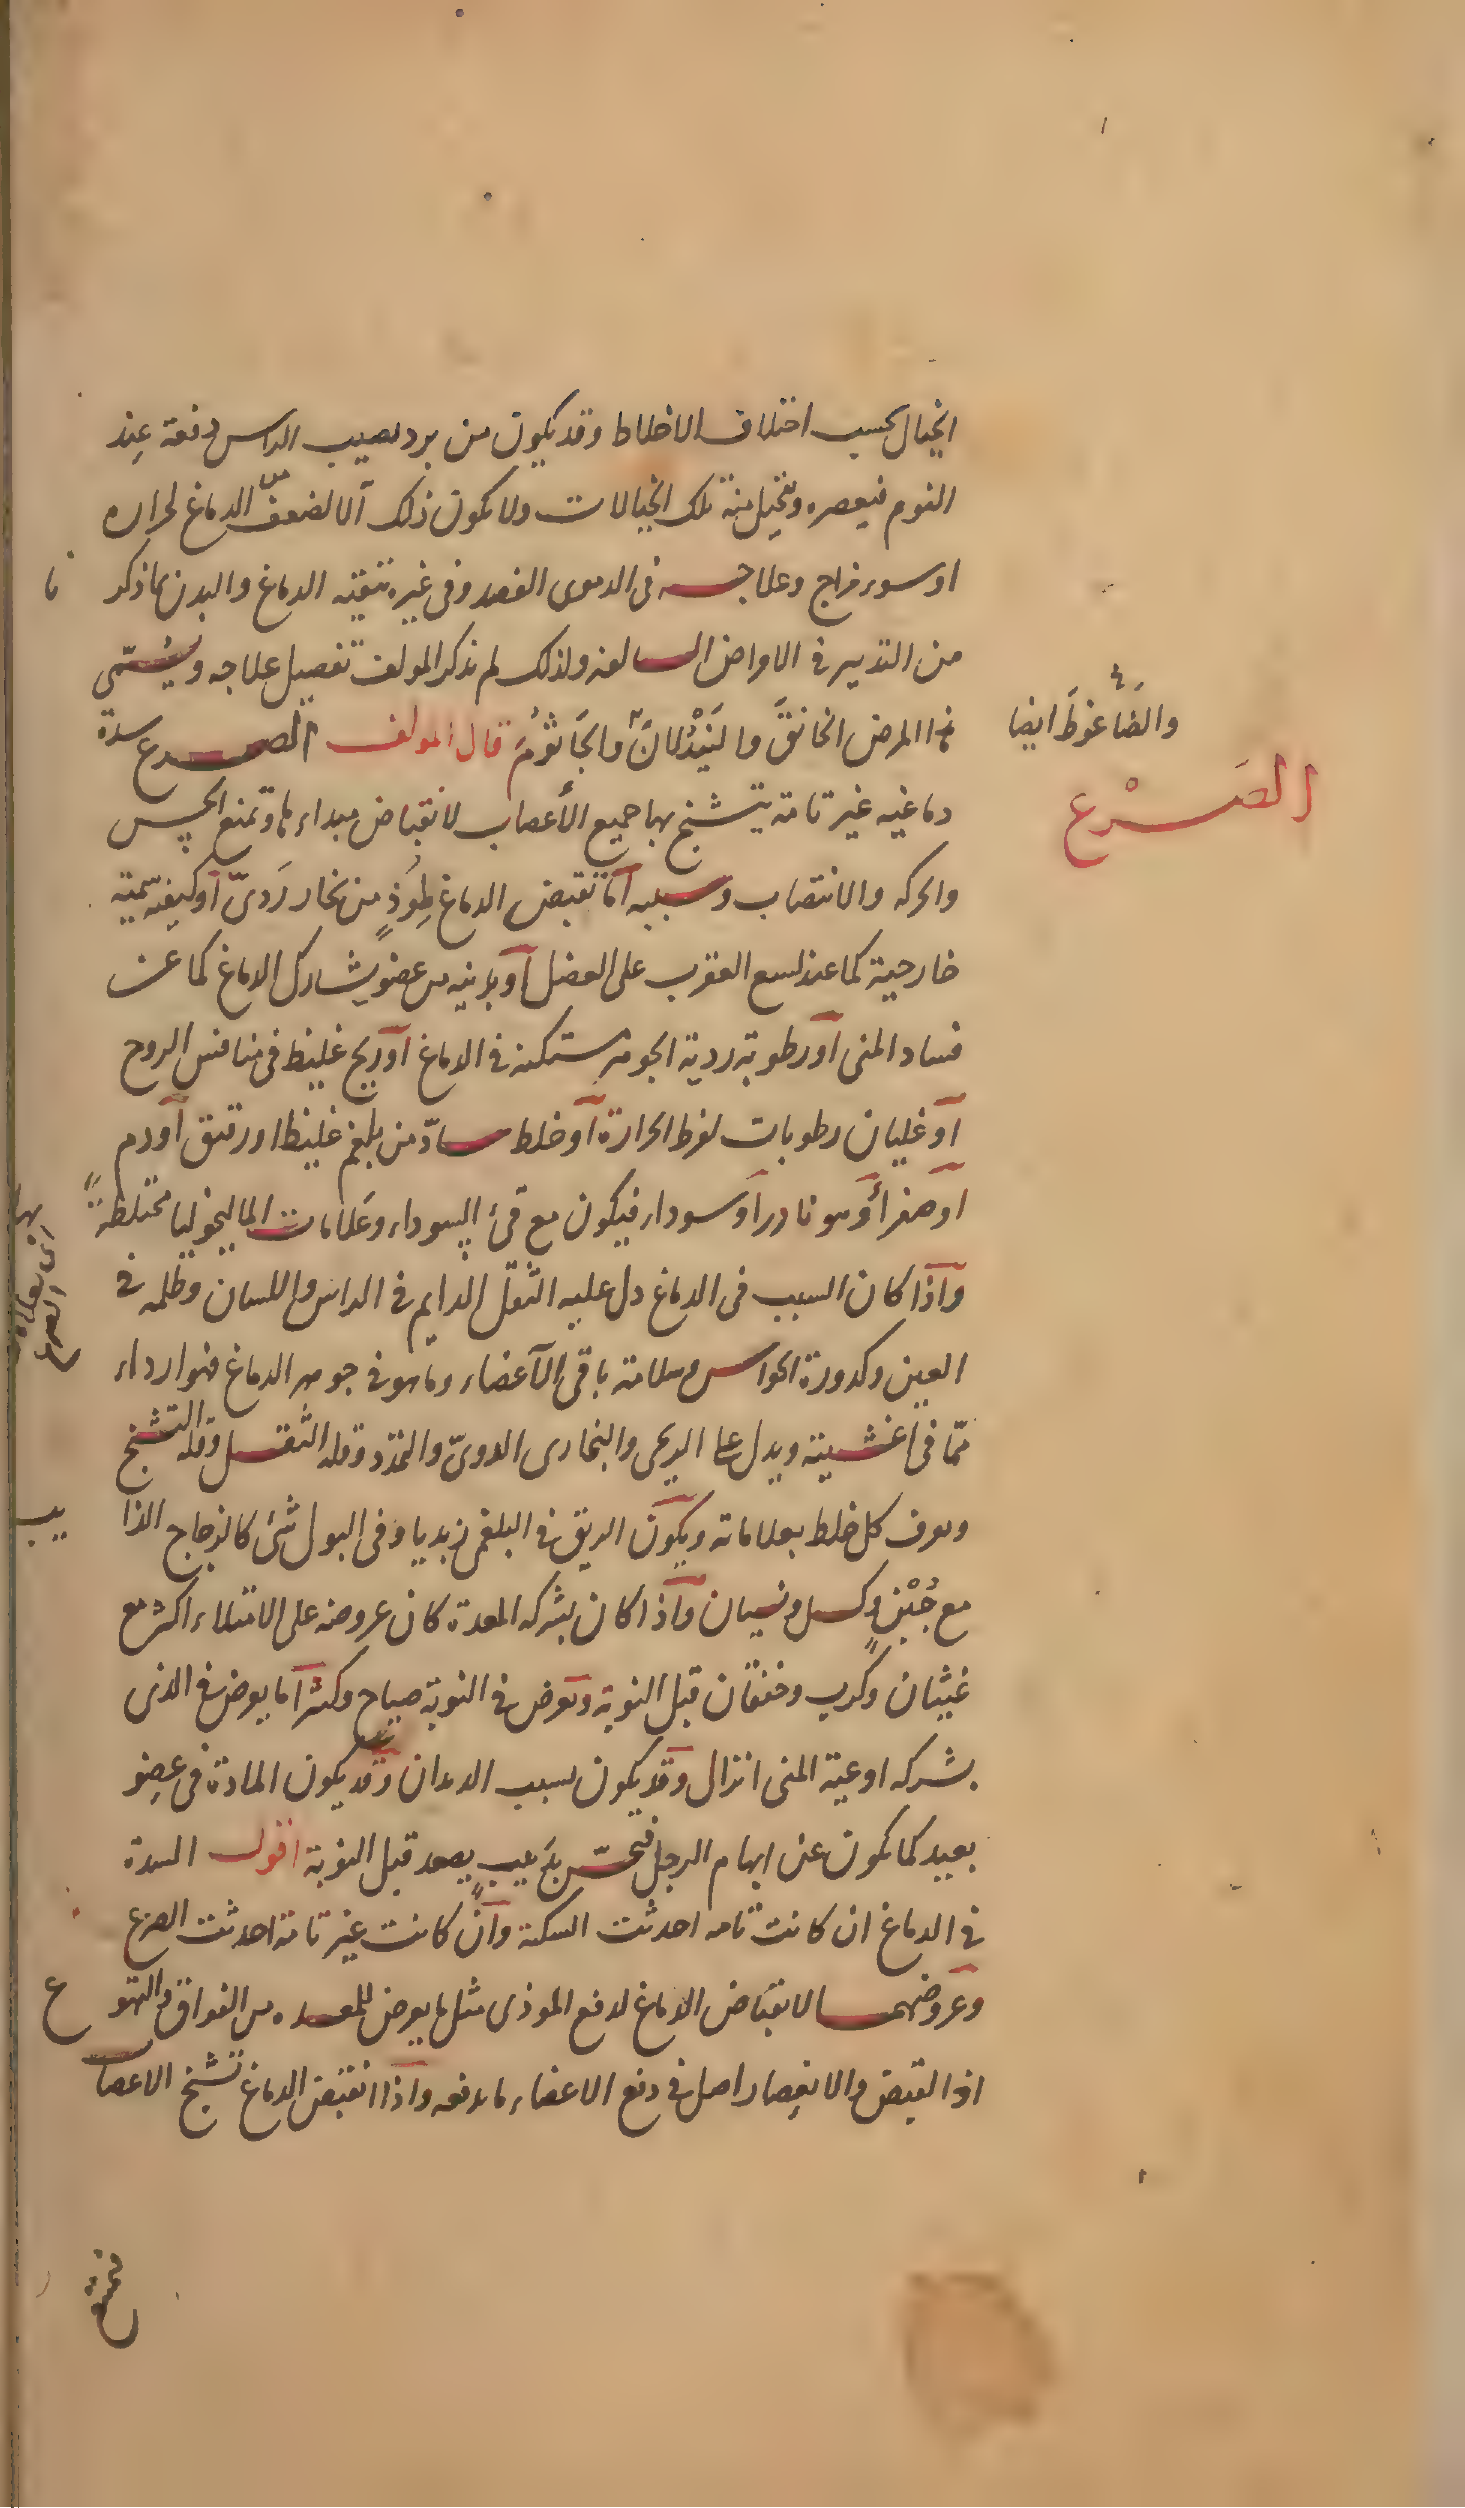 الخيال بحسب اختلاف الاخلاط وقد يكون من برد يصيب الراس دفعة عند
النوم فيعصره ويتخيل منه تلك الخيالات ولا يكون ذلك الا لضعف من الدماغ لحراره
او سوء مزاج وعلاجه فى الدموى الفصد وفى غيره تنقيته الدماغ والبدن بما ذكر نا
من التدبير فى الامراض السالفه ولذلك لم يذكر المولف تفصيل علاجه ويسمى
هذا المرض الخانق والنيدلان والجاثوم قال المولف الصرع سدة
والضاغوط ايضا
الصرع
دماغيه غير تامة يتشنج بها جميع الأعصاب لانقباض مبداءها وتمنع الحس
والحركه والانتصاب وسببه اما تقبض الدماغ لموذ من بخار ردىّ او كيفيه سمية
خارجية كما عند لسع العقرب على العضل او بدنيه من عضو يشارك الدماغ كما عن
فساد المنى او رطوبة ردية الجوهر مستكنه فى الدماغ او ريح غليظ فى منافس الروح
او غليان رطوبات لفرط الحرارة او خلط سادّ من بلغم غليظ او رقيق او دم
او صفراء وهو نادر او سوداء فيكون مع قئ السوداء وعلامات الماليخوليا مختلطة
واذا كان السبب فى الدماغ دل عليه الثقل الدايم فى الراس واللسان وظلمه فى
العين وكدورة الحواس وسلامة باقى الأعضاء وما هو فى جوهر الدماغ فهو ارداء
ممّا فى اغشيته ويدل على الريحى والبخارى الدوىّ والتمدّد وقله الثقل وقله التشنج
ويعرف كل خلط بعلاماته ويكون الريق فى البلغمى زبديا وفى البول شئ كالزجاج الذا يب
مع جُبْنٍ وكسل ونسيان واذا كان بشركه المعدة كان عروضه على الامتلاء اكثر مع
غثيان وكرب وخفقان قبل النوبة ويعرض فى النوبة صياح وكثيرا ما يعرض فى الذى
بشركه اوعية المنى انزال وقد يكون بسبب الديدان وقد يكون المادة فى عضو
بعيد كما يكون عن ابهام الرجل فيحسّ بدبيبٍ يصعد قبل النوبة اقول السدة
فى الدماغ ان كانت تامه احدثت السكتة وان كانت غير تامة احدثت الصرع
وعروضهما لانقباض الدماغ لدفع الموذى مثل ما يعرض للمعده من الفواق والتهو ع
اذ القبض والانعصار اصل فى دفع الاعضاء ما يدفعه واذا انقبض الدماغ تشنج الاعصاب